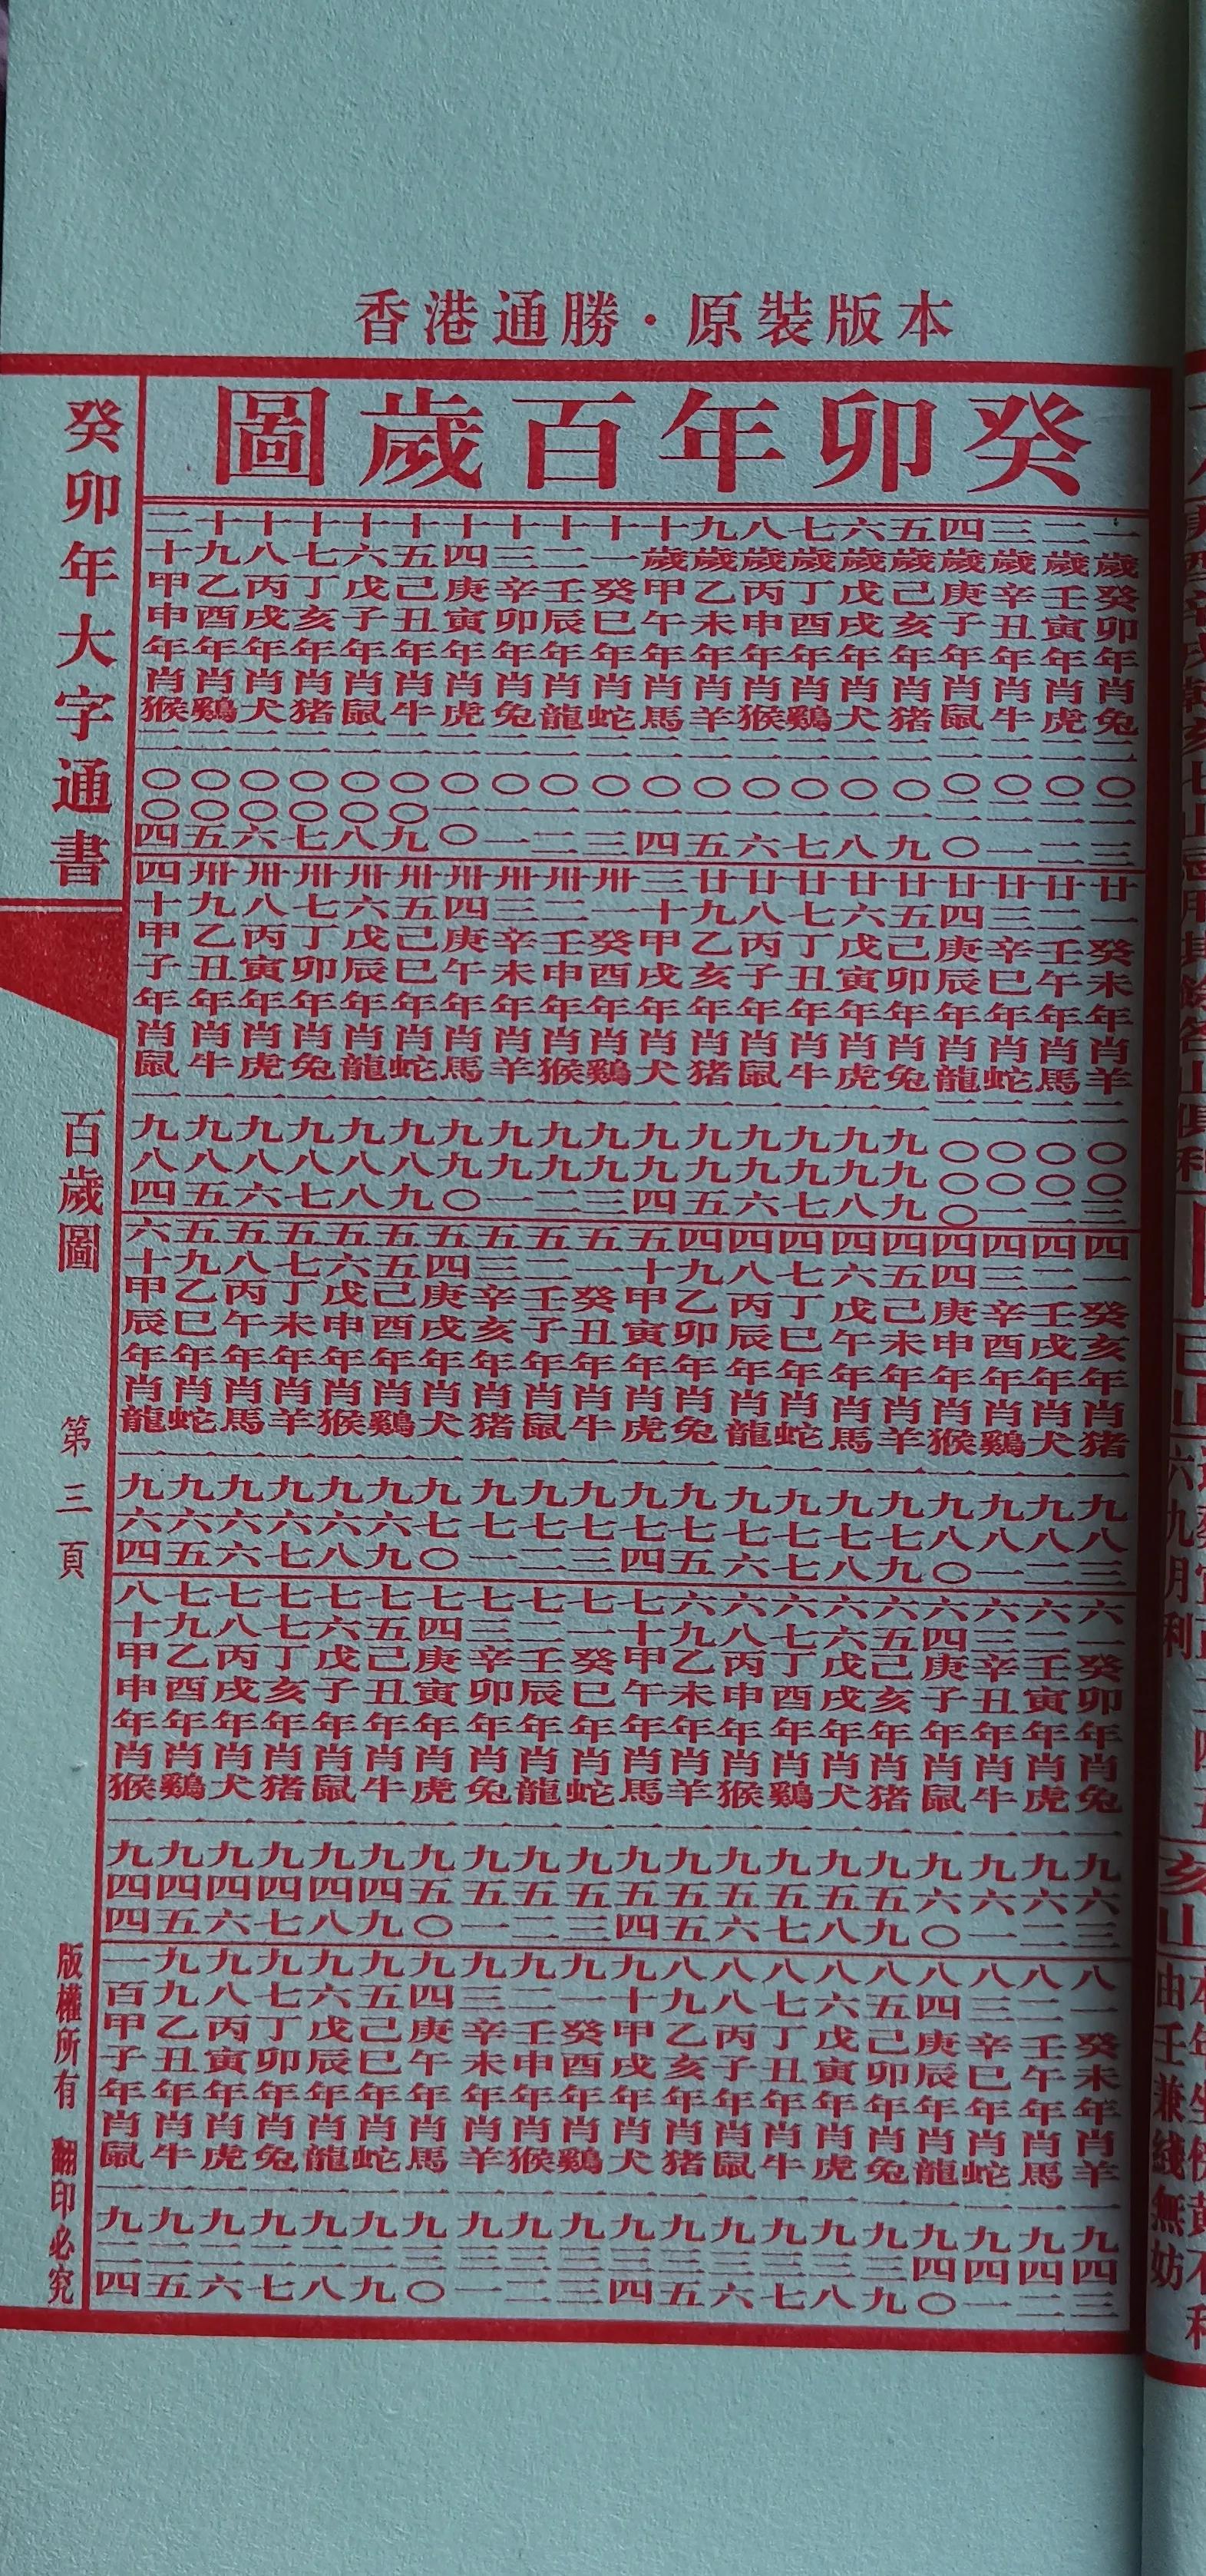 香港通勝·原裝版本
癸卯年百歲圖
一歲癸卯年肖兔二〇二三
二歲壬寅年肖虎二〇二二
三歲辛丑年肖牛二〇二一
四歲庚子年肖鼠二〇二〇
五歲己亥年肖猪二〇一九
六歲戊戌年肖犬二〇一八
七歲丁酉年肖鷄二〇一七
八歲丙申年肖猴二〇一六
九歲乙未年肖羊二〇一五
十歲甲午年肖馬二〇一四
十一癸巳年肖蛇二〇一三
十二壬辰年肖龍二〇一二
十三辛卯年肖兔二〇一一
十四庚寅年肖虎二〇一〇
十五己丑年肖牛二〇〇九
十六戊子年肖鼠二〇〇八
十七丁亥年肖猪二〇〇七
十八丙戌年肖犬二〇〇六
十九乙酉年肖鷄二〇〇五
二十甲申年肖猴二〇〇四
廿一癸未年肖羊二〇〇三
廿二壬午年肖馬二〇〇二
廿三辛巳年肖蛇二〇〇一
廿四庚辰年肖龍二〇〇〇
廿五己卯年肖兔一九九九
廿六戊寅年肖虎一九九八
廿七丁丑年肖牛一九九七
廿八丙子年肖鼠一九九六
廿九乙亥年肖猪一九九五
三十甲戌年肖犬一九九四
卅一癸酉年肖鷄一九九三
卅二壬申年肖猴一九九二
卅三辛未年肖羊一九九一
卅四庚午年肖馬一九九〇
卅五己巳年肖蛇一九八九
卅六戊辰年肖龍一九八八
卅七丁卯年肖兔一九八七
卅八丙寅年肖虎一九八六
卅九乙丑年肖牛一九八五
四十甲子年肖鼠一九八四
四一癸亥年肖猪一九八三
四二壬戌年肖犬一九八二
四三辛酉年肖鷄一九八一
四四庚申年肖猴一九八〇
四五己未年肖羊一九七九
四六戊午年肖馬一九七八
四七丁巳年肖蛇一九七七
四八丙辰年肖龍一九七六
四九乙卯年肖兔一九七五
五十甲寅年肖虎一九七四
五一癸丑年肖牛一九七三
五二壬子年肖鼠一九七二
五三辛亥年肖猪一九七一
五四庚戌年肖犬一九七〇
五五己酉年肖鷄一九六九
五六戊申年肖猴一九六八
五七丁未年肖羊一九六七
五八丙午年肖馬一九六六
五九乙巳年肖蛇一九六五
六十甲辰年肖龍一九六四
六一癸卯年肖兔一九六三
六二壬寅年肖虎一九六二
六三辛丑年肖牛一九六一
六四庚子年肖鼠一九六〇
六五己亥年肖猪一九五九
六六戊戌年肖犬一九五八
六七丁酉年肖鷄一九五七
六八丙申年肖猴一九五六
六九乙未年肖羊一九五五
七十甲午年肖馬一九五四
七一癸巳年肖蛇一九五三
七二壬辰年肖龍一九五二
七三辛卯年肖兔一九五一
七四庚寅年肖虎一九五〇
七五己丑年肖牛一九四九
七六戊子年肖鼠一九四八
七七丁亥年肖猪一九四七
七八丙戌年肖犬一九四六
七九乙酉年肖鷄一九四五
八十甲申年肖猴一九四四
八一癸未年肖羊一九四三
八二壬午年肖馬一九四二
八三辛巳年肖蛇一九四一
八四庚辰年肖龍一九四〇
八五己卯年肖兔一九三九
八六戊寅年肖虎一九三八
八七丁丑年肖牛一九三七
八八丙子年肖鼠一九三六
八九乙亥年肖猪一九三五
九十甲戌年肖犬一九三四
九一癸酉年肖鷄一九三三
九二壬申年肖猴一九三二
九三辛未年肖羊一九三一
九四庚午年肖馬一九三〇
九五己巳年肖蛇一九二九
九六戊辰年肖龍一九二八
九七丁卯年肖兔一九二七
九八丙寅年肖虎一九二六
九九乙丑年肖牛一九二五
一百甲子年肖鼠一九二四
癸卯年大字通書
百歲圖
第三頁
版權所有 翻印必究